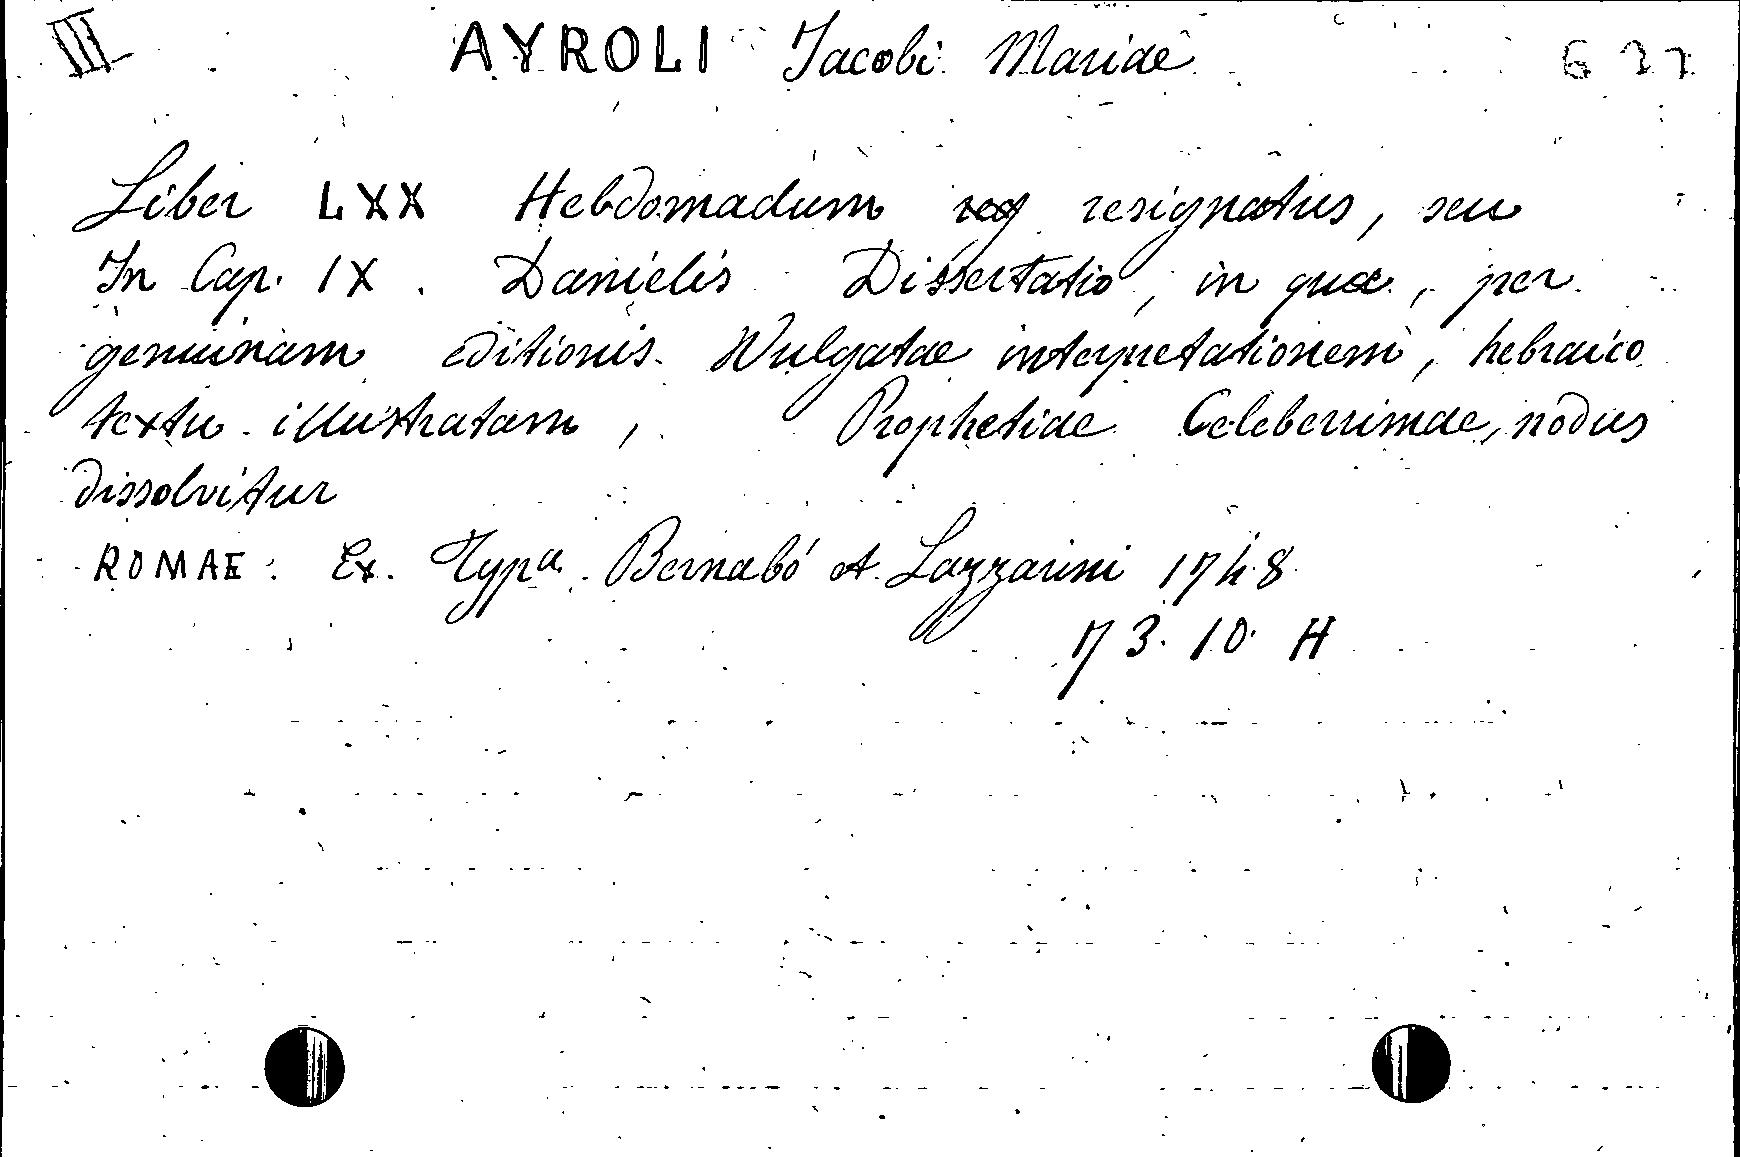 III AYROLI Jacobi Mariae 627
Liber LXX Hebdomadum resignatus, seu
In Cap. IX. Danielis Dissertatio, in qua, per
genuinam editionis Wulgatae interpretationem, hebraico
textu illustratam, Prophetiae Celeberrimae, nodus
dissolvitur
ROMAE: Ex. Typa. Bernabó et Lazzarini 1748
73.10 H